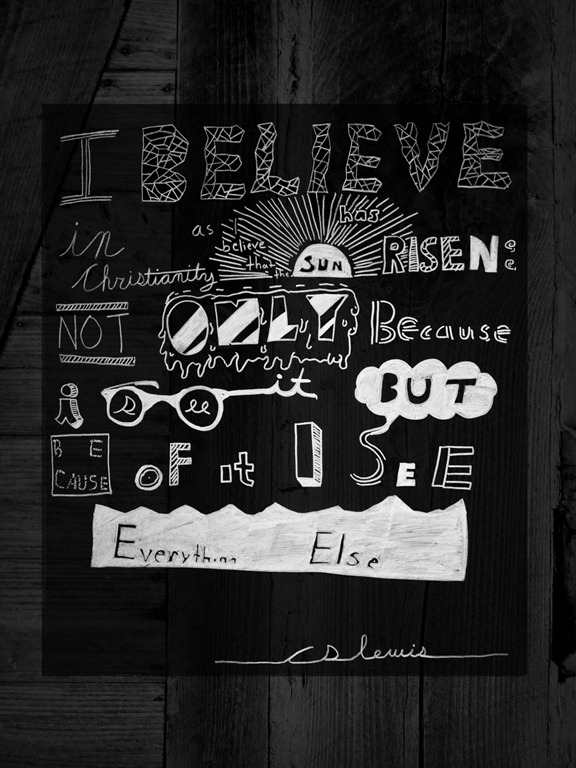 I BELIEVE
in Christianity
as I believe that the SUN has RISEN:
NOT ONLY Because
i see it BUT
BECAUSE OF it I SEE
Everything Else
CS Lewis